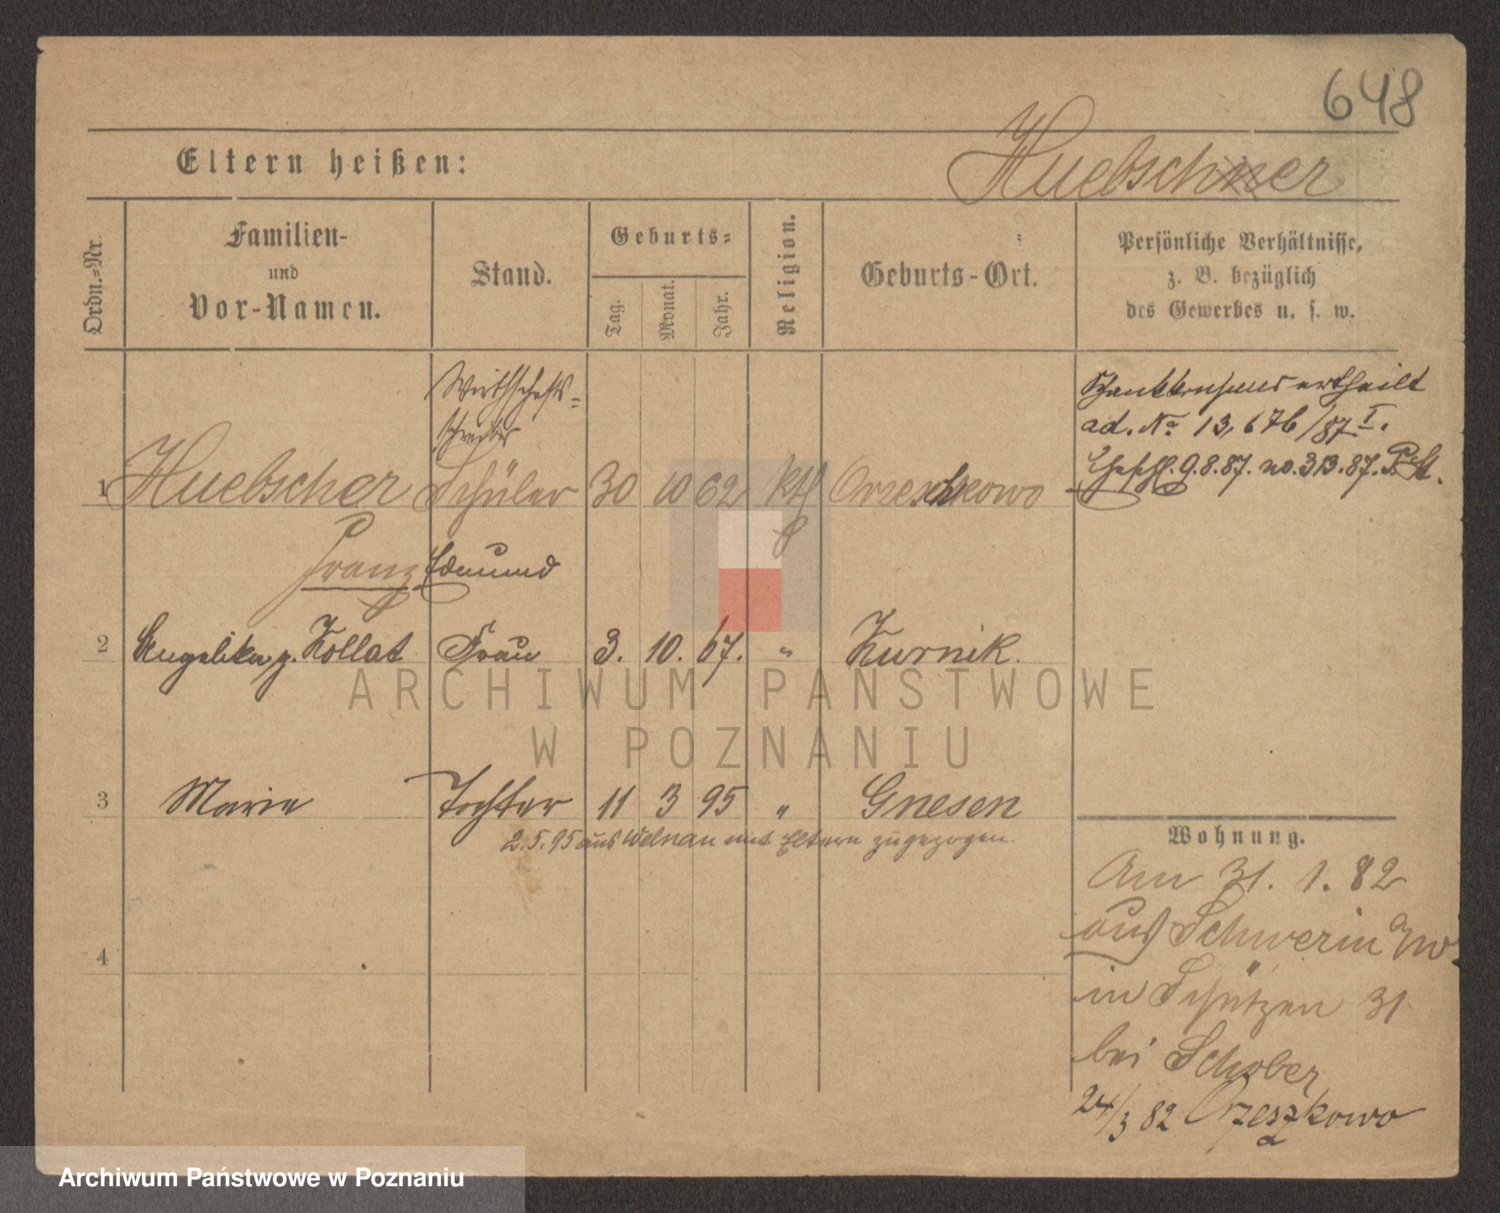 648
Eltern heißen:
Huebscher
Ordn.-Nr.
Familien-
und
Vor-Namen.
Stand.
Geburts-
Tag.
Monat.
Jahr.
Religion.
Geburts-Ort.
Persönliche Verhältnisse,
z. B. bezüglich
des Gewerbes u. s. w.
Wirthschafts-
schreiber
1 Huebscher Schüler 30 10 62 kth Orzeschkowo
Franz Edmund
Schankkonsens ertheilt
ad. No 13,676/87 I.
9.8.87. no. 313.87.
2 Angelika g. Kollat Frau 3. 10. 67. " Kurnik.
3 Marie Tochter 11 3 95 " Gnesen
2.5.95 aus Welnau mit Eltern zugezogen.
4
Wohnung.
Am 31. 1. 82
aus Schwerin
in Schützen 31
bei Schober
24/3 82 Orzeszkowo
ARCHIWUM PAŃSTWOWE
W POZNANIU
Archiwum Państwowe w Poznaniu